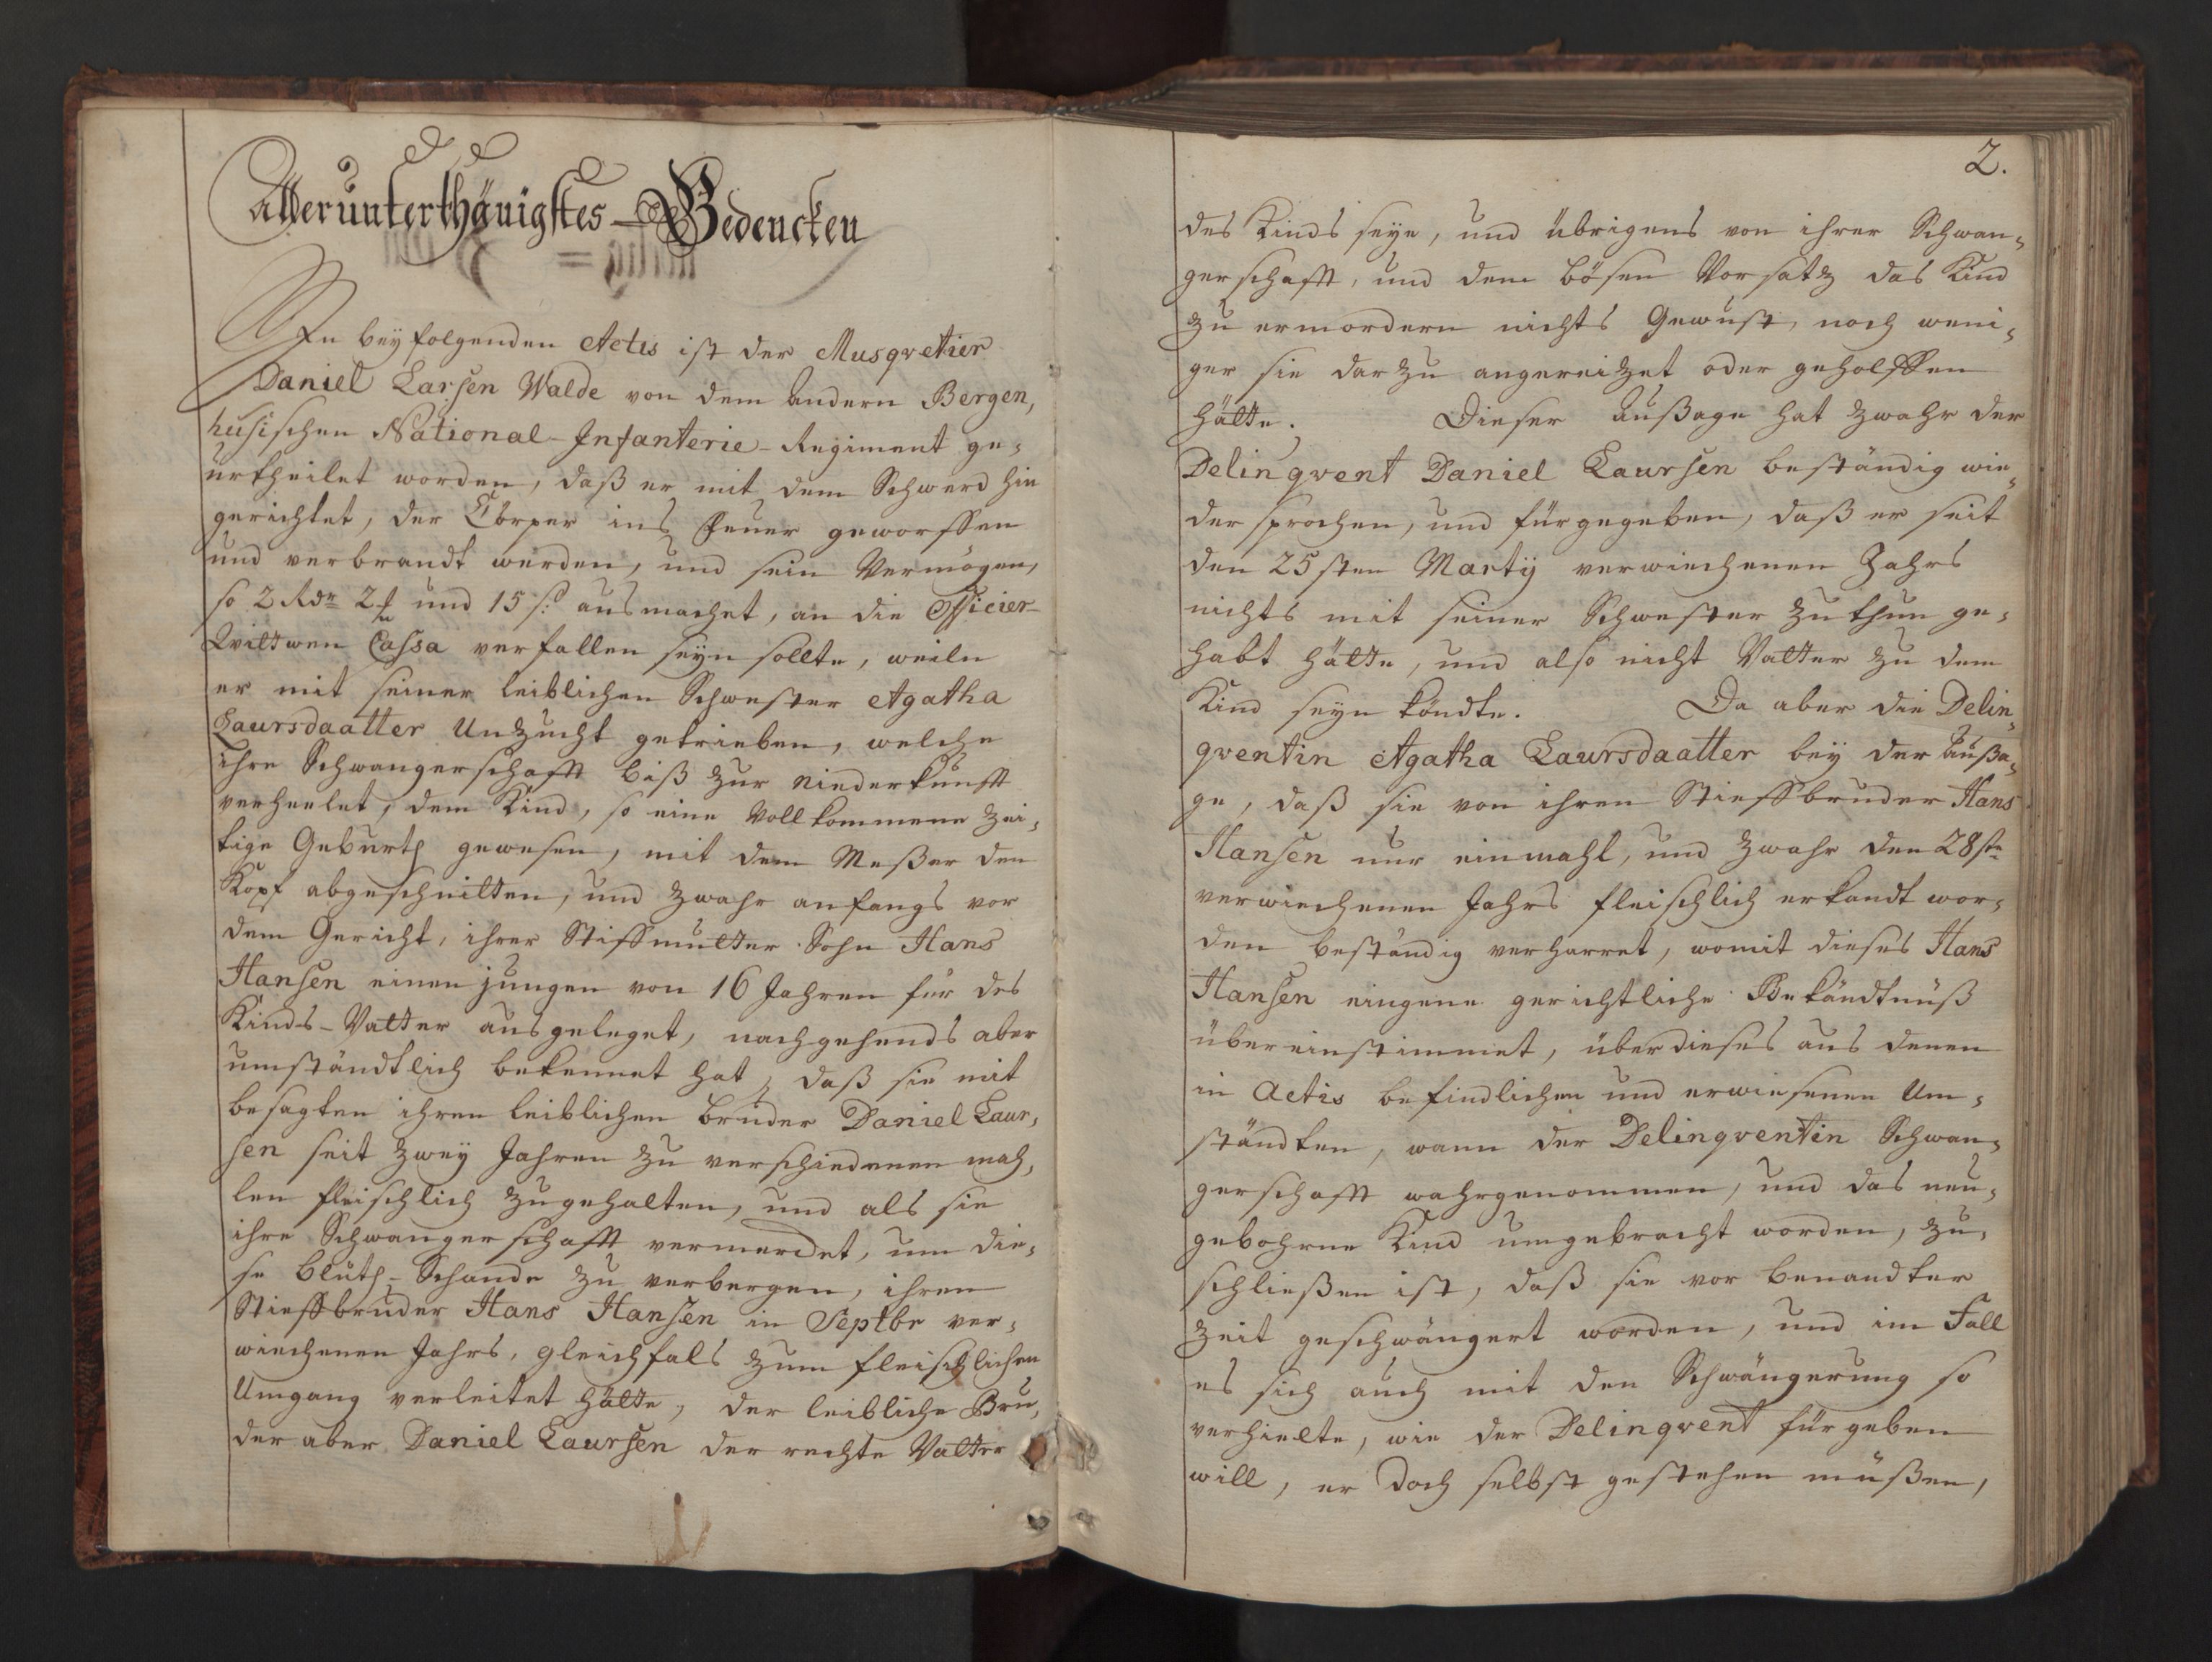 Allerunterthänigstes Bedencken
In beyfolgenden Actis ist der Musqvetier
Daniel Larsen Walde von dem andern Bergen,
husischen National-Infanterie-Regiment ge,
urtheilet worden, daß er mit dem Schwerd hin
gerichtet, der Cörper ins Feuer geworffen
und verbrandt werden, und sein Vermögen,
so 2 Rdr 2 und 15 ß: ausmachet, an die Officier-
Wittwen Cassa verfallen seyn sollte, weiln
er mit seiner leiblichen Schwester Agatha
Laursdaatter Unzucht getrieben, welche
ihre Schwangerschafft biß zur niederkunfft
verheelet, dem Kind, so eine Vollkommene zei,
tige Geburth gewesen, mit dem Meßer den
Kopf abgeschnitten, und zwahr anfangs vor
dem Gericht, ihrer Stiffmutter Sohn Hans
Hansen einen jungen von 16 Jahren für des
Kinds-Vatter ausgeleget, nachgehends aber
umständtlich bekennet hat, daß sie mit
besagten ihren leiblichen bruder Daniel Laur,
sen seit zwey Jahren zu verschiedenen mah,
len fleischlich zugehalten, und als sie
ihre Schwangerschafft vermercket, um die,
se bluth-Schande zu verbergen, ihren
Stieffbruder Hans Hansen in Septbr ver,
wiechenen Jahrs, gleichfals zum fleischlichen
Umgang verleitet hätte, der leibliche Bru,
der aber Daniel Laursen der rechte Vatter
2.
des Kinds seye, und übrigens von ihrer Schwan,
gerschafft, und dem bösen Vorsatz das Kind
zu ermordern nichts Gewust, noch weni,
ger sie darzu angereitzet oder geholffen
hätte. Dieser außage hat zwahr der
Delinqvent Daniel Laursen beständig wie,
dersprochen, und fürgegeben, daß er seit
den 25sten Martij verwiechenen Jahrs
nichts mit seiner Schwester zu thun ge,
habt hätte, und also nicht Vatter zu dem
Kind seyn köndte. Da aber die Delin,
qventin Agatha Laursdaatter bey der außa,
ge, daß sie von ihren Stieffbruder Hans
Hansen nur einmahl, und zwahr den 28ste
verwiechenen Jahrs fleischlich erkandt wor,
den beständig verharret, womit dieses Hans
Hansen eingene gerichtliche Bekändtnüß
übereinstimmet, über dieses aus denen
in Actis befindlichen und erwiesenen Um,
ständten, wann der Delinqventin Schwan,
gerschafft wahrgenommen, und das neu,
gebohrne Kind umgebracht worden, zu,
schließen ist, daß sie vor benandter
Zeit geschwängert worden, und im Fall
es sich auch mit den Schwängerung so
verhielte, wie der Delinqvent fürgeben
will, er doch selbst gestehen müßen,